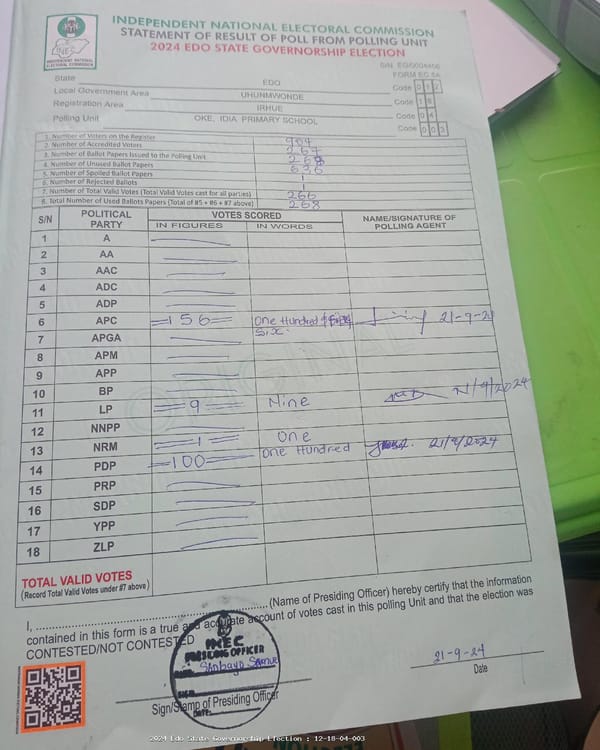 INDEPENDENT NATIONAL ELECTORAL COMMISSION
STATEMENT OF RESULT OF POLL FROM POLLING UNIT
2024 EDO STATE GOVERNORSHIP ELECTION
INEC
INDEPENDENT NATIONAL ELECTORAL COMMISSION
FORM EC 8A
State EDO Code 012
Local Government Area UHUNMWONDE Code 18
Registration Area IRHUE Code 04
Polling Unit OKE, IDIA PRIMARY SCHOOL Code 003
1. Number of Voters on the Register 904
2. Number of Accredited Voters 267
3. Number of Ballot Papers Issued to the Polling Unit
4. Number of Unused Ballot Papers 636
5. Number of Spoiled Ballot Papers 1
6. Number of Rejected Ballots 1
7. Number of Total Valid Votes (Total Valid Votes cast for all parties) 266
8. Total Number of Used Ballots Papers (Total of #5 + #6 + #7 above) 268
S/N POLITICAL PARTY VOTES SCORED NAME/SIGNATURE OF POLLING AGENT
IN FIGURES IN WORDS
1 A
2 AA
3 AAC
4 ADC
5 ADP
6 APC =156= One Hundred & Fifty Six. 21-9-24
7 APGA
8 APM
9 APP
10 BP
11 LP =9= Nine
12 NNPP
13 NRM =1= One
14 PDP =100= One Hundred 21/9/2024
15 PRP
16 SDP
17 YPP
18 ZLP
TOTAL VALID VOTES
(Record Total Valid Votes under #7 above)
I, ........................ (Name of Presiding Officer) hereby certify that the information
contained in this form is a true and accurate account of votes cast in this polling Unit and that the election was
CONTESTED/NOT CONTESTED
INEC
PRESIDING OFFICER
Sign/Stamp of Presiding Officer
DATE:
21-9-24
Date
2024 Edo State Governorship Election : 12-18-04-003